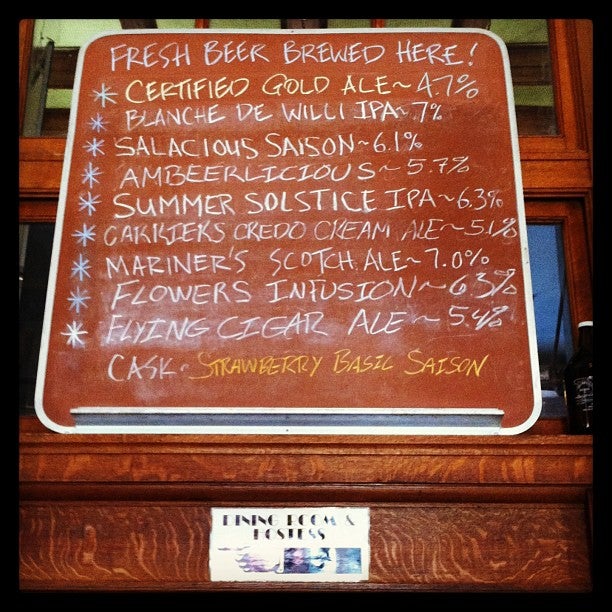 FRESH BEER BREWED HERE!
* CERTIFIED GOLD ALE~4.7%
* BLANCHE DE WILLI IPA~7%
* SALACIOUS SAISON~6.1%
* AMBEERLICIOUS~5.7%
* SUMMER SOLSTICE IPA~6.3%
* CARKIEKS CREDO CREAM ALE~5.1%
* MARINER'S SCOTCH ALE~7.0%
* FLOWERS INFUSION~6.3%
* FLYING CIGAR ALE~5.4%
CASK- STRAWBERRY BASIL SAISON
DINING ROOM &
HOSTESS